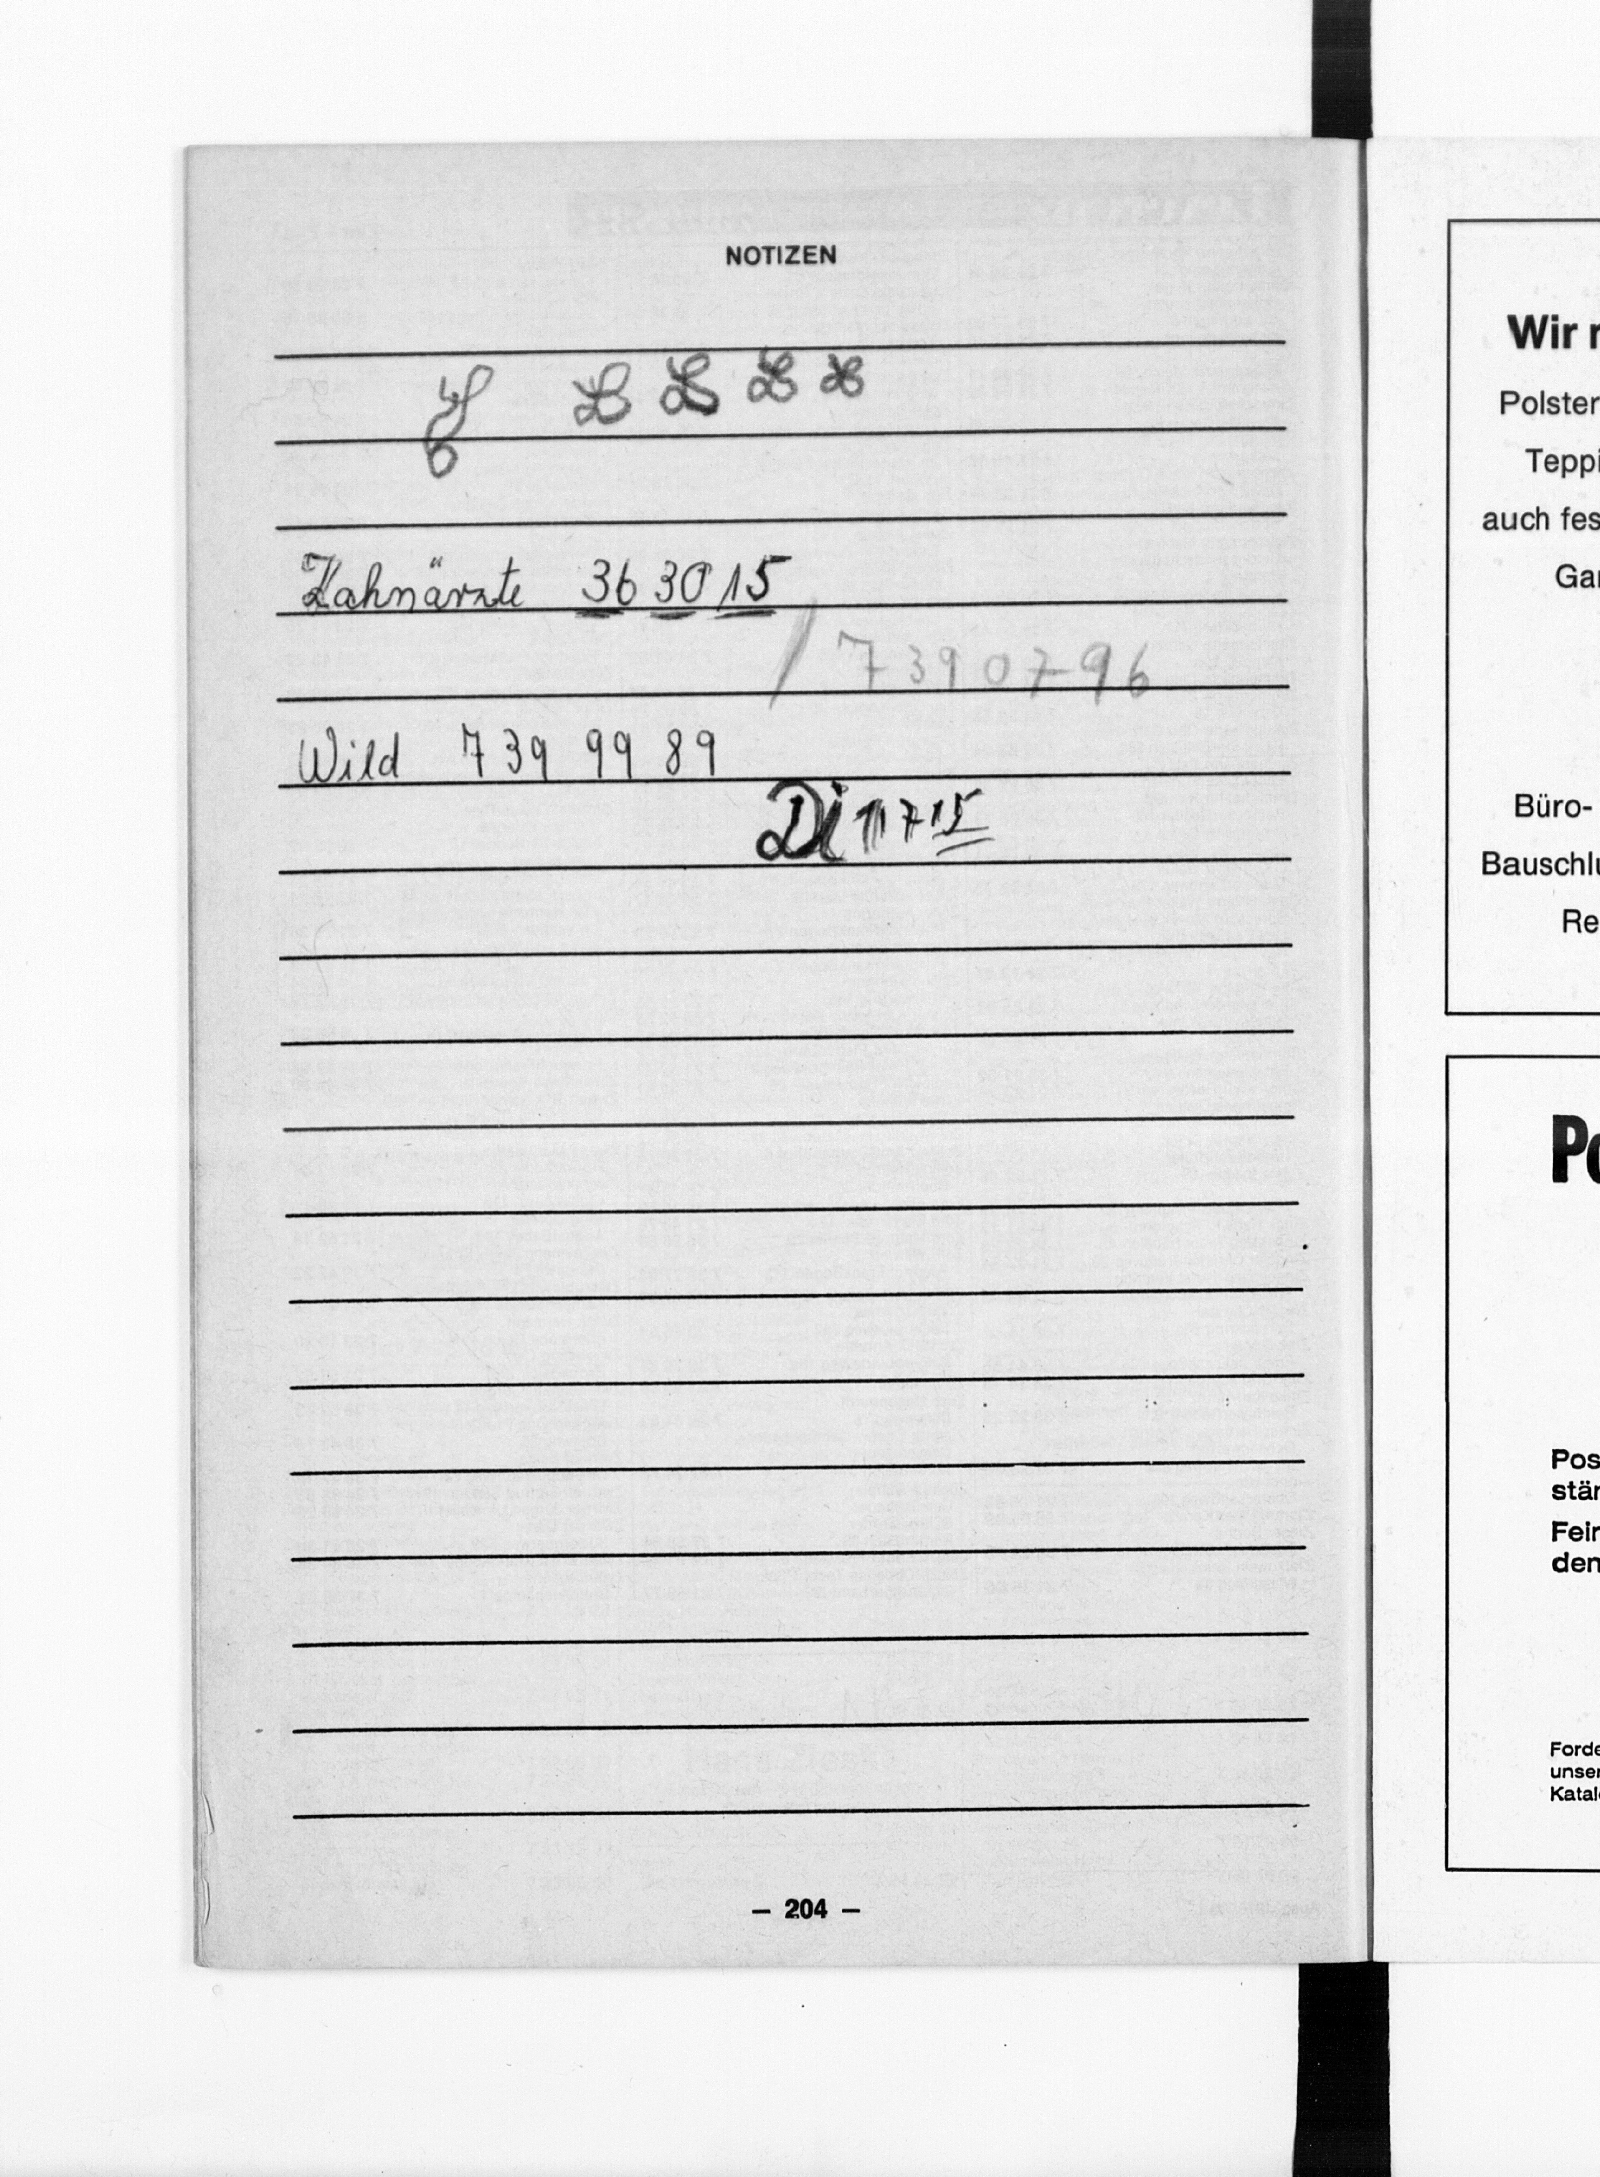 NOTIZEN
Zahnärzte 36 30 15
/ 739 07 96
Wild 739 99 89
Di 11 7 15
- 204 -
Wir
Polster
Teppi
auch fes
Gar
Büro-
Bauschlu
Re
Po
Pos
stän
Fein
den
Forde
unser
Katal